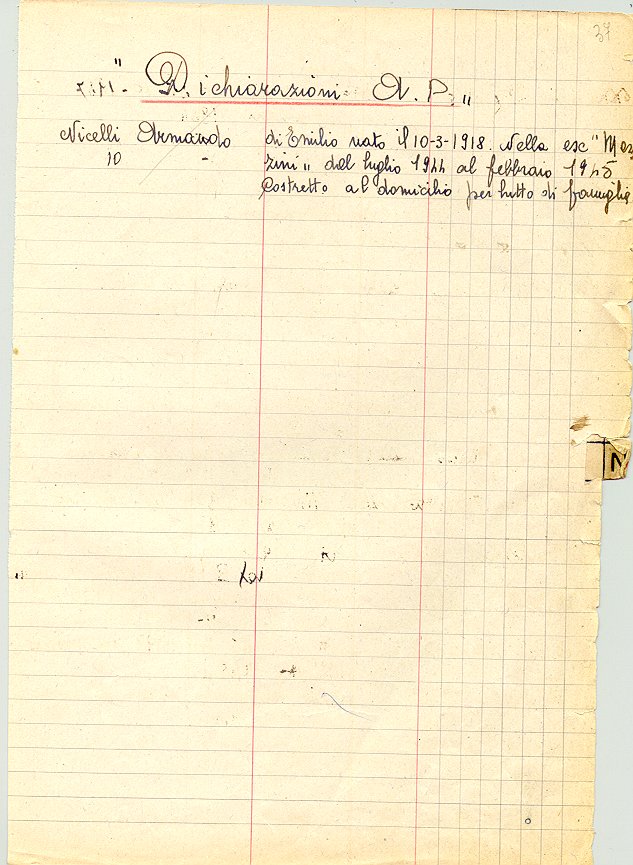 37
" Dichiarazioni N. P. „
Nicelli Armando di Emilio nato il 10-3-1918. Nella ex "Maz
10 - zini „ dal luglio 1944 al febbraio 1945
Costretto al domicilio per lutto di famiglia
N